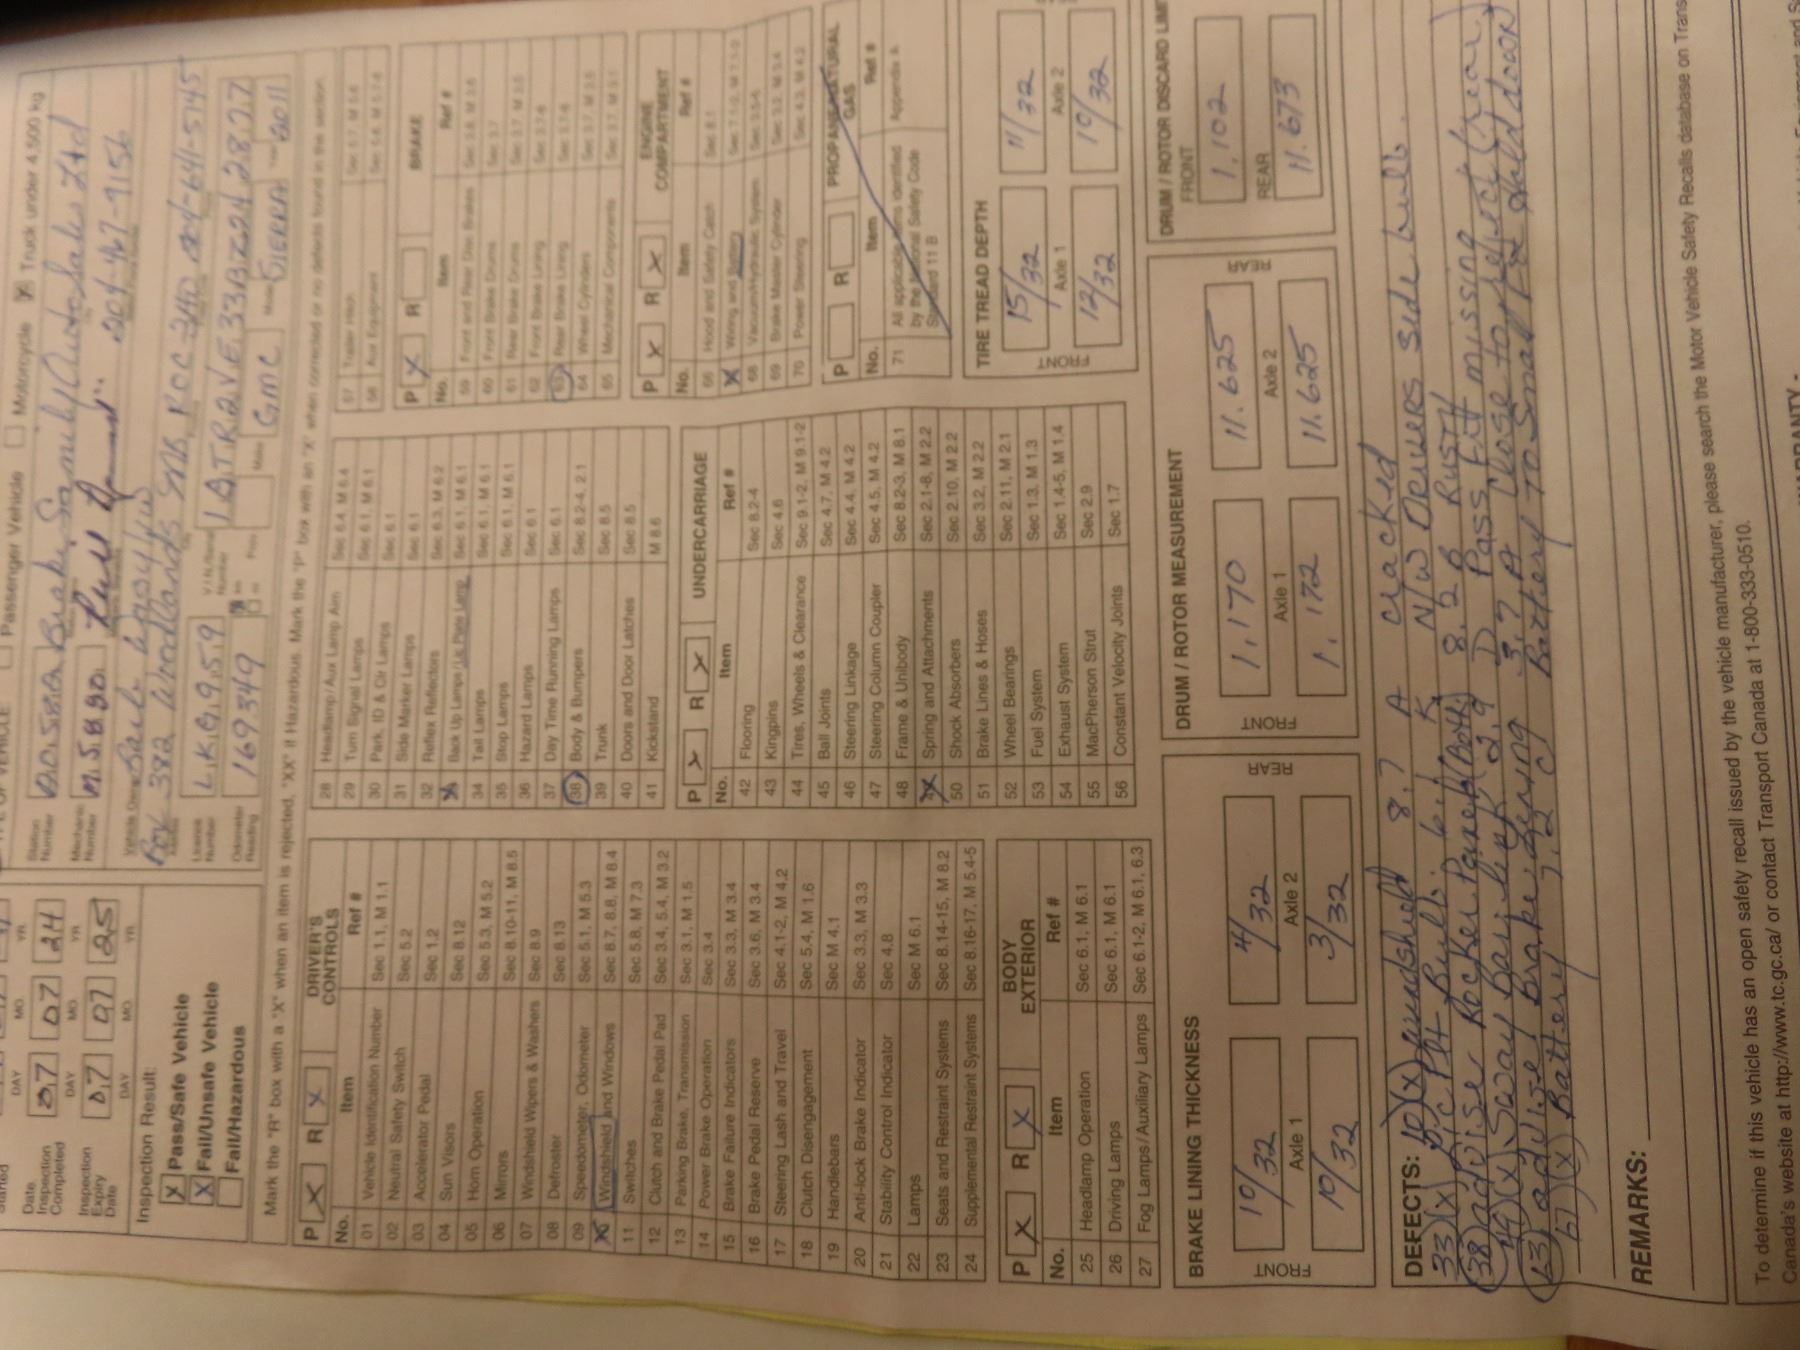 Passenger Vehicle
Motorcycle
X Truck under 4,500 kg
Station Number
Mechanic Number
Licence Number
L.K.G.9.5.9
V.I.N./Serial Number
Odometer Reading
169349
km
Make
GMC
Model
SIERRA
2011
DAY MO YR
Date Inspection Completed
0.7 07 24
DAY MO YR
Inspection Expiry Date
0.7 07 25
DAY MO YR
Inspection Result:
X Pass/Safe Vehicle
X Fail/Unsafe Vehicle
Fail/Hazardous
Mark the "R" box with a "X" when an item is rejected, "XX" if Hazardous. Mark the "P" box with an "X" when corrected or no defects found in the section.
P X R X DRIVER'S CONTROLS
No. Item Ref #
01 Vehicle Identification Number Sec 1.1, M 1.1
02 Neutral Safety Switch Sec 5.2
03 Accelerator Pedal Sec 1.2
04 Sun Visors Sec 8.12
05 Horn Operation Sec 5.3, M 5.2
06 Mirrors Sec 8.10-11, M 8.5
07 Windshield Wipers & Washers Sec 8.9
08 Defroster Sec 8.13
09 Speedometer, Odometer Sec 5.1, M 5.3
10 Windshield and Windows Sec 8.7, 8.8, M 8.4
11 Switches Sec 5.8, M 7.3
12 Clutch and Brake Pedal Pad Sec 3.4, 5.4, M 3.2
13 Parking Brake, Transmission Sec 3.1, M 1.5
14 Power Brake Operation Sec 3.4
15 Brake Failure Indicators Sec 3.3, M 3.4
16 Brake Pedal Reserve Sec 3.6, M 3.4
17 Steering Lash and Travel Sec 4.1-2, M 4.2
18 Clutch Disengagement Sec 5.4, M 1.6
19 Handlebars Sec M 4.1
20 Anti-lock Brake Indicator Sec 3.3, M 3.3
21 Stability Control Indicator Sec 4.8
22 Lamps Sec M 6.1
23 Seats and Restraint Systems Sec 8.14-15, M 8.2
24 Supplemental Restraint Systems Sec 8.16-17, M 5.4-5
P X R X BODY EXTERIOR
No. Item Ref #
25 Headlamp Operation Sec 6.1, M 6.1
26 Driving Lamps Sec 6.1, M 6.1
27 Fog Lamps/Auxiliary Lamps Sec 6.1-2, M 6.1, 6.3
28 Headlamp/Aux Lamp Aim Sec 6.4, M 6.4
29 Turn Signal Lamps Sec 6.1, M 6.1
30 Park, ID & Clr Lamps Sec 6.1
31 Side Marker Lamps Sec 6.1
32 Reflex Reflectors Sec 6.3, M 6.2
Back Up Lamps/Lic Plate Lamp Sec 6.1, M 6.1
34 Tail Lamps Sec 6.1, M 6.1
35 Stop Lamps Sec 6.1, M 6.1
36 Hazard Lamps Sec 6.1
37 Day Time Running Lamps Sec 6.1
38 Body & Bumpers Sec 8.2-4, 2.1
39 Trunk Sec 8.5
40 Doors and Door Latches Sec 8.5
41 Kickstand M 8.6
P X R X UNDERCARRIAGE
No. Item Ref #
42 Flooring Sec 8.2-4
43 Kingpins Sec 4.6
44 Tires, Wheels & Clearance Sec 9.1-2, M 9.1-2
45 Ball Joints Sec 4.7, M 4.2
46 Steering Linkage Sec 4.4, M 4.2
47 Steering Column Coupler Sec 4.5, M 4.2
48 Frame & Unibody Sec 8.2-3, M 8.1
Spring and Attachments Sec 2.1-8, M 2.2
50 Shock Absorbers Sec 2.10, M 2.2
51 Brake Lines & Hoses Sec 3.2, M 2.2
52 Wheel Bearings Sec 2.11, M 2.1
53 Fuel System Sec 1.3, M 1.3
54 Exhaust System Sec 1.4-5, M 1.4
55 MacPherson Strut Sec 2.9
56 Constant Velocity Joints Sec 1.7
57 Trailer Hitch
58 Aux Equipment
P X R BRAKE
No. Item Ref #
59 Front and Rear Disc Brakes
60 Front Brake Drums
61 Rear Brake Drums
62 Front Brake Lining
Rear Brake Lining
64 Wheel Cylinders
65 Mechanical Components
P X R X ENGINE COMPARTMENT
No. Item Ref #
66 Hood and Safety Catch
Wiring and
68 Vacuum/Hydraulic System
69 Brake Master Cylinder
70 Power Steering
P R PROPANE/NATURAL GAS
No. Item Ref #
71 All applicable items identified by the National Safety Code Standard 11 B Appendix A
TIRE TREAD DEPTH
FRONT
15/32 11/32
Axle 1 Axle 2
12/32 10/32
BRAKE LINING THICKNESS
FRONT REAR
10/32 4/32
Axle 1 Axle 2
10/32 3/32
DRUM / ROTOR MEASUREMENT
FRONT REAR
1.170 11.625
Axle 1 Axle 2
1.172 11.625
DRUM / ROTOR DISCARD LIMIT
FRONT
1.102
REAR
11.673
DEFECTS: 10(X) Windshield 8.7 A cracked
33(X) Lic Plt Bulb. 6.1 K N/W Drivers side bulb.
38) advise Rocker Panels (Both) 8.2 B Rusty
49(X) Sway Bar link 2.9 D Pass Frt missing
advise Brake Lining 3.7 A Close to reject (rear)
67)(X) Battery 7.2 C Battery to small
REMARKS:
To determine if this vehicle has an open safety recall issued by the vehicle manufacturer, please search the Motor Vehicle Safety Recalls database on Trans
Canada's website at http://www.tc.gc.ca/ or contact Transport Canada at 1-800-333-0510.